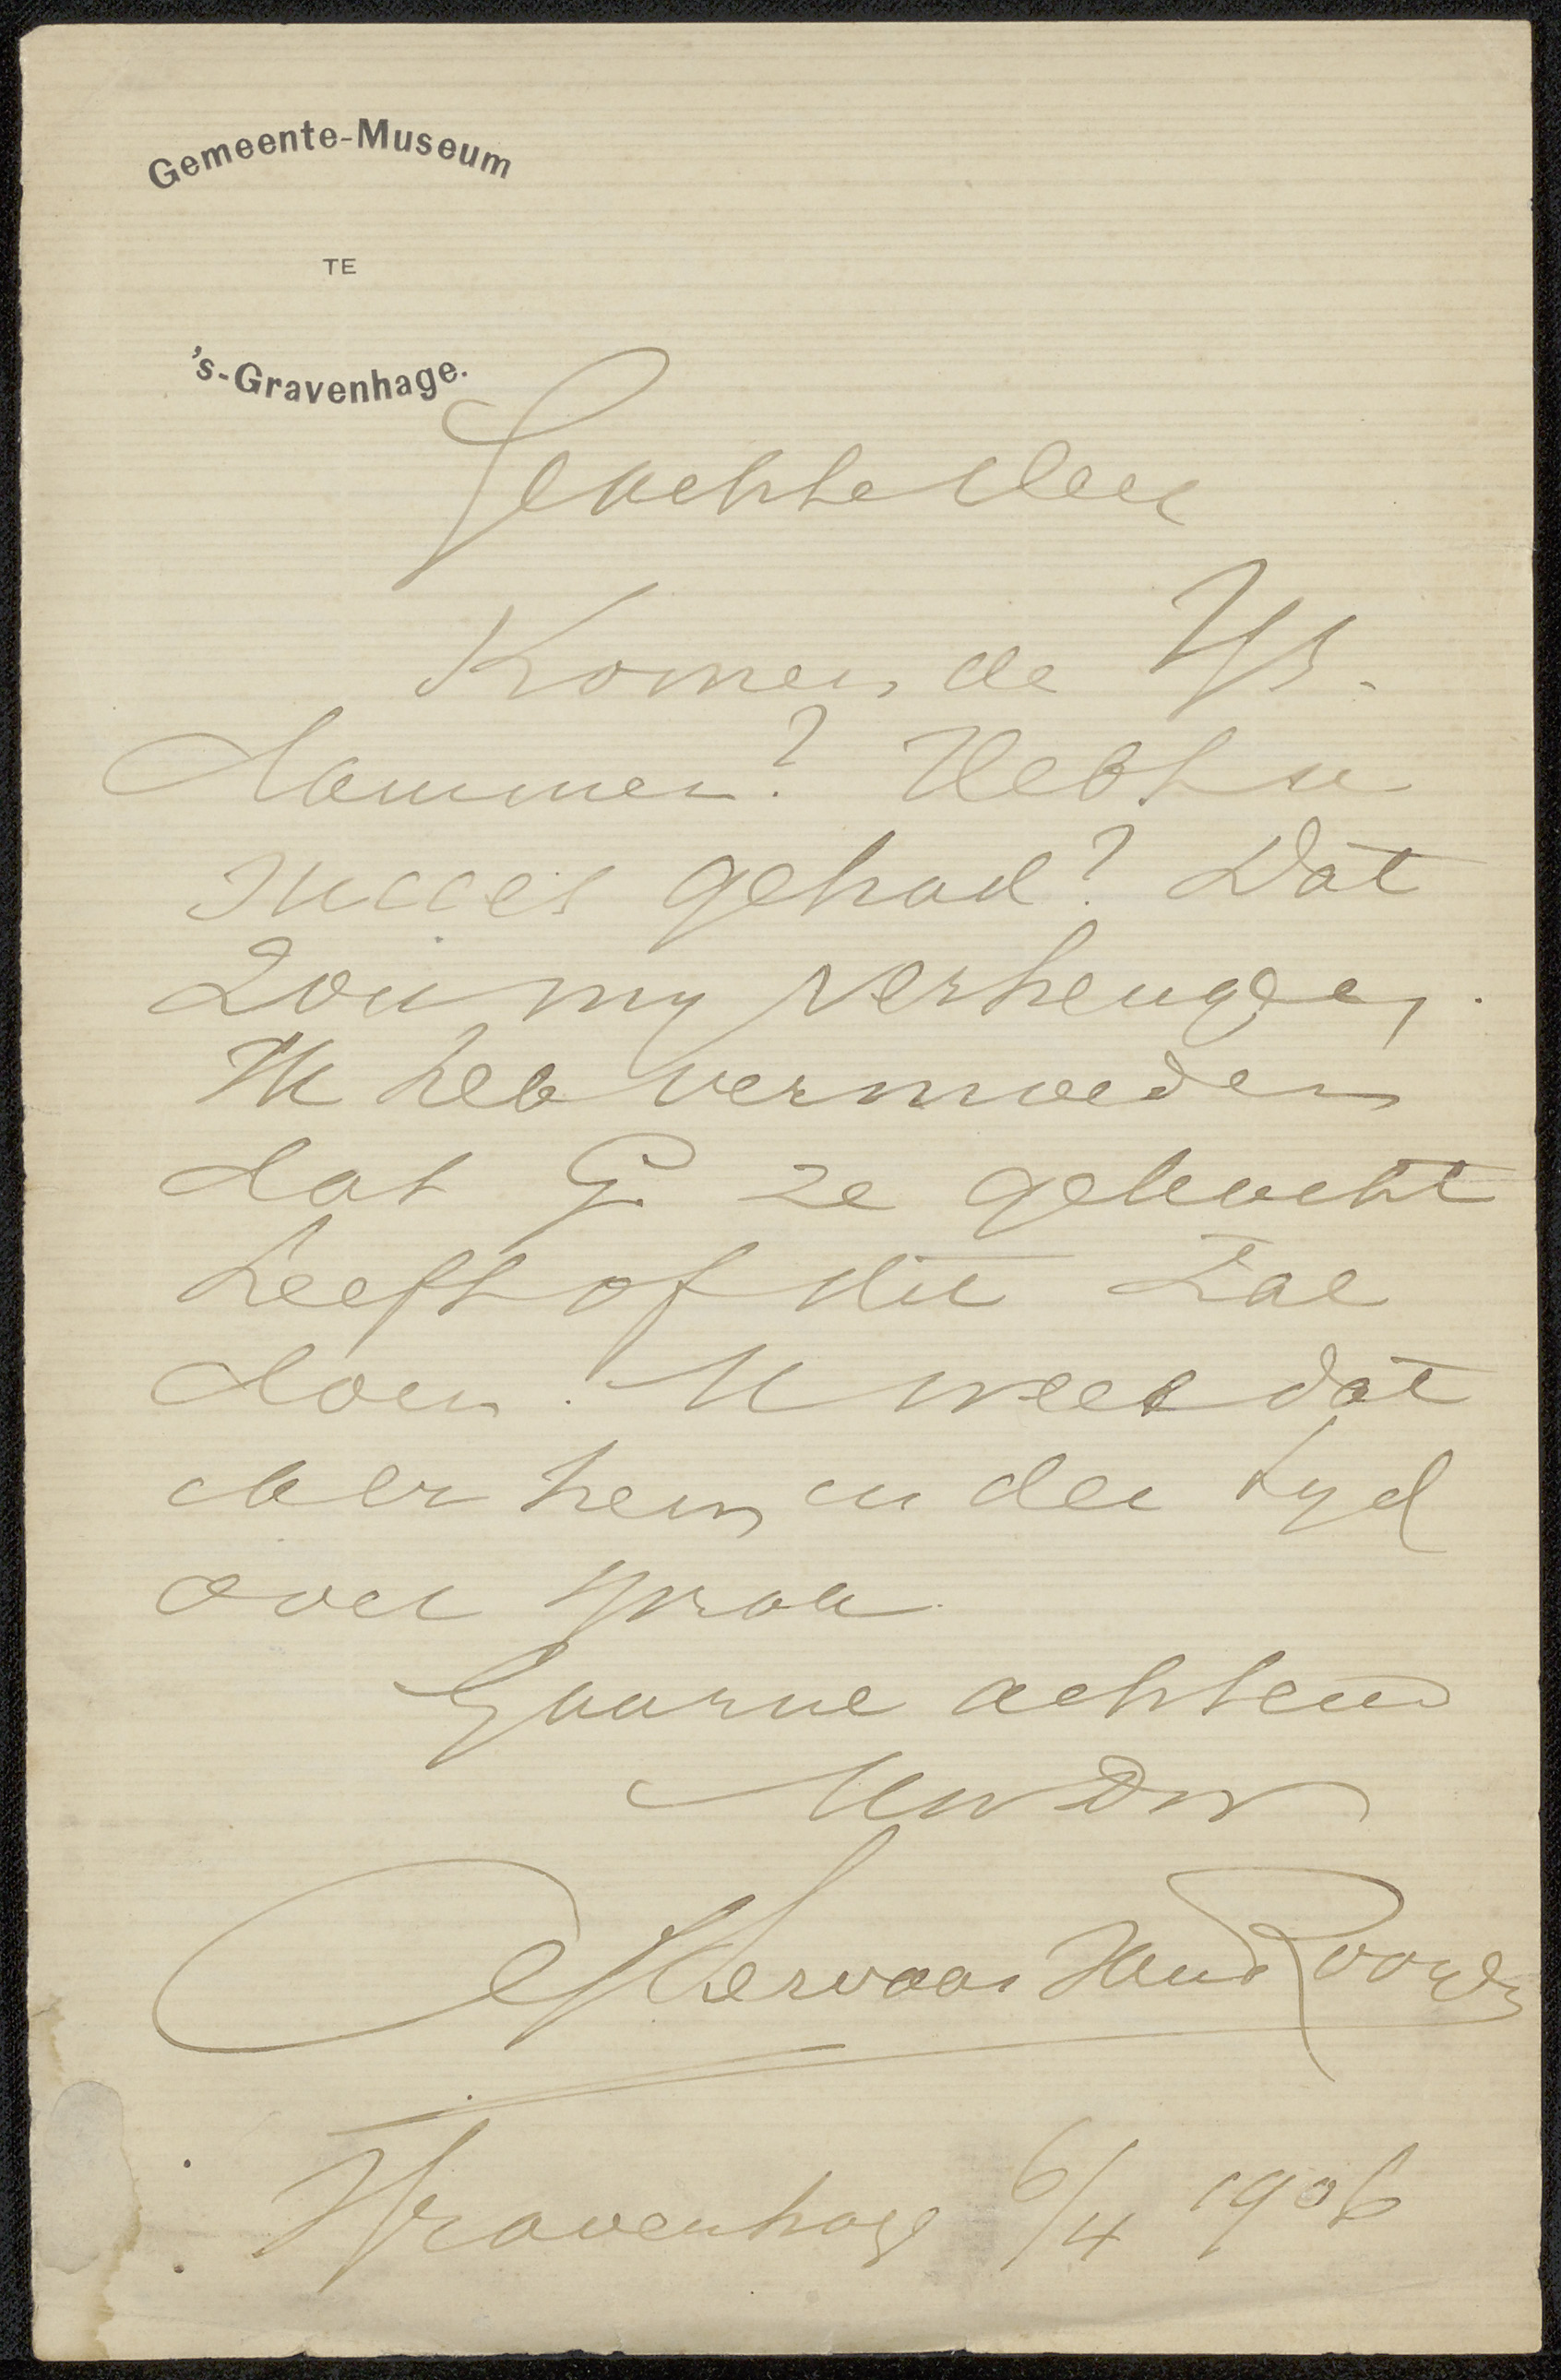 Gemeente-Museum
TE
's-Gravenhage.
Geachte Heer
Komen de
Hebt u
succes gehad? Dat
zou my verheugen.
Ik heb vermoeden
dat G ze gekocht
heeft of dit zal
doen. U weet dat
hem in der tyd
over sprak
Gaarne achtend
Uw Dw
Servaas van Rooyen
'sGravenhage 6/4 1906